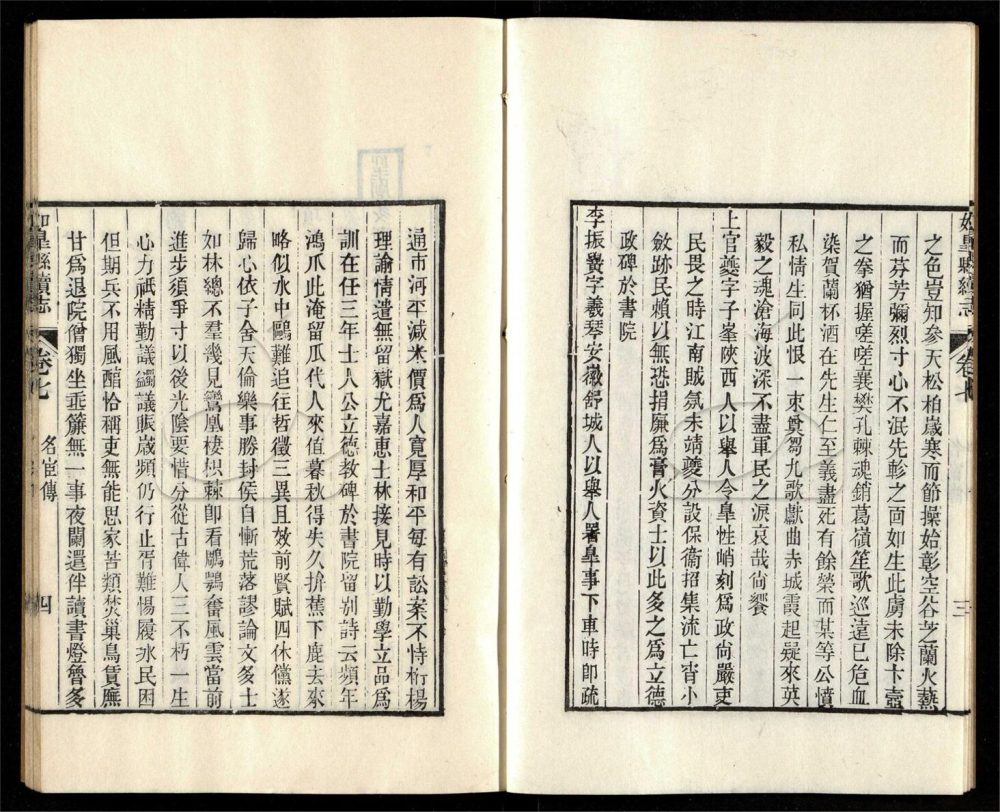 如皋縣續志 卷七 三
之色豈知參天松柏歲寒而節操始彰空谷芝蘭火爇
而芬芳彌烈寸心不泯先軫之面如生此虜未除卞壼
之拳猶握嗟嗟襄樊孔棘魂銷葛嶺笙歌巡遠已危血
染賀蘭杯酒在先生仁至義盡死有餘榮而某等公憤
私情生同此恨一束奠芻九歌獻曲赤城霞起疑來英
毅之魂滄海波深不盡軍民之淚哀哉尙饗
上官夔字子峯陝西 人以舉人令皐性峭刻爲政尙嚴吏
民畏之時江南賊氛未靖夔分設保衞招集流亡宵小
斂跡民賴以無恐捐廉爲膏火資士以此多之爲立德
政碑於書院
李振黌字羲琴安徽舒城人以舉人署皐事下車時卽疏
通市河平減米價爲人寬厚和平每有訟案不恃桁楊
理諭情遣無留獄尤嘉惠士林接見時以勤學立品爲
訓在任三年士人公立德教碑於書院留别詩云頻年
鴻爪此淹留瓜代人來值暮秋得失久拚蕉下鹿去來
略似水中鷗難追往哲徵三異且效前賢賦四休儻遂
歸心依子舍天倫樂事勝封侯自慚荒落謬論文多士
如林總不羣幾見鸞凰棲枳棘卽看鵰鶚奮風雲當前
進步須爭寸以後光陰要惜分從古偉人三不朽一生
心力祇精勤議蠲議賑歲頻仍行止胥難惕履冰民困
但期兵不用風醇恰稱吏無能思家苦類焚巢鳥賃廡
甘爲退院僧獨坐垂簾無一事夜闌還伴讀書燈魯多
如皋縣續志 卷七 名宦傳 四